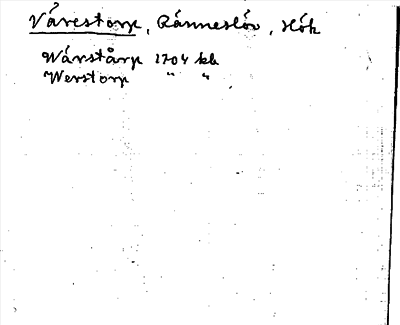 Vårestorp, Ränneslöv, Hök
Wårstårp 1704 kb
Werstorp " "